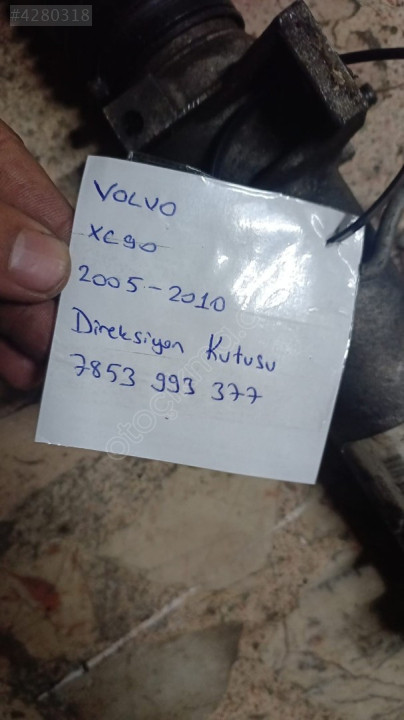 #4280318
VOLVO
XC90
2005-2010
Direksiyon Kutusu
7853 993 377